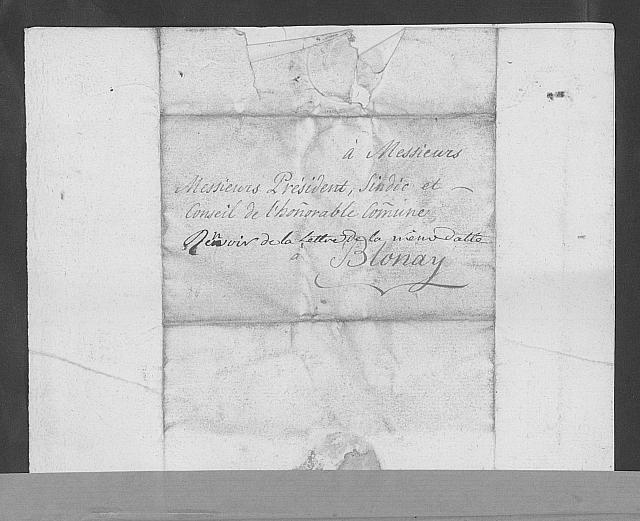 à Messieurs
Messieurs Président, Sindic et
Conseil de l'hoñorable Com̃une
de la lettre de la même datte
à Blonay